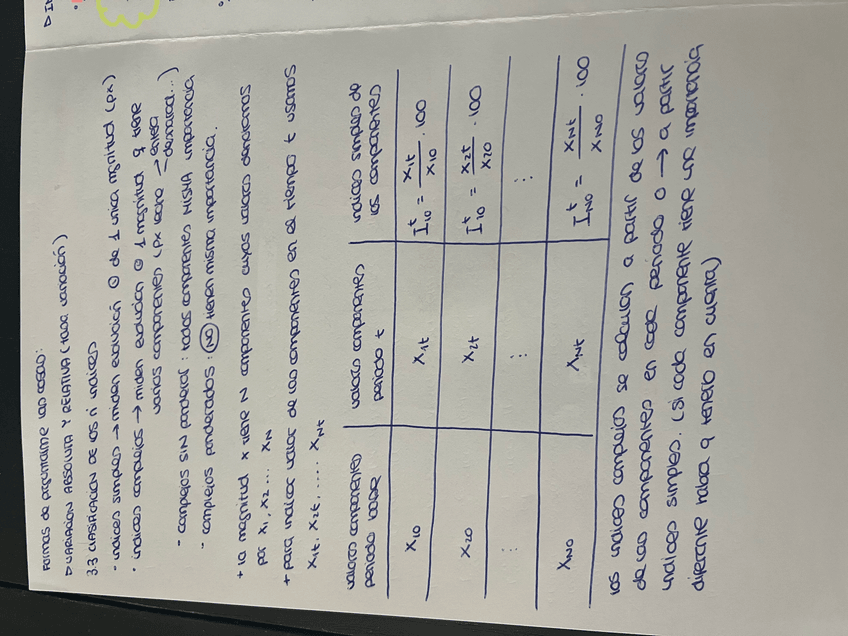 Formas de preguntarme las cosas:
▷ VARIACION ABSOLUTA Y RELATIVA (tasa variación)
3.3 CLASIFICACION DE los nº índices
· indices simples → miden evolución ⊖ de 1 única mgnitud (px)
· indices complejos → miden evolucion ⊖ 1 mgnitud q tiene
varios componentes (px sobre → entrea
desventad...)
- complejos SIN ponderar : todos componentes MISMA importancia
- complejos ponderados : NO tienen misma importancia.
+ la magnitud x tiene N componentes cuyos valores denotamos
por x1, x2 ... xN
+ para indicar valor de las componentes en el tiempo t usamos
x1t, x2t, ..... xNt
valores componentes periodo base | valores componentes periodo t | indices simples de los componentes
x10 | x1t | I10^t = x1t/x10 · 100
x20 | x2t | I10^t = x2t/x20 · 100
⋮ | ⋮ | ⋮
xN0 | xNt | IN0^t = xNt/xN0 · 100
los indices complejos se calculan a partir de los valores
de las componentes en cada periodo o → a partir
indices simples. (si cada componente tiene una importancia
diferente habra q tenerlo en cuenta)
▷ It